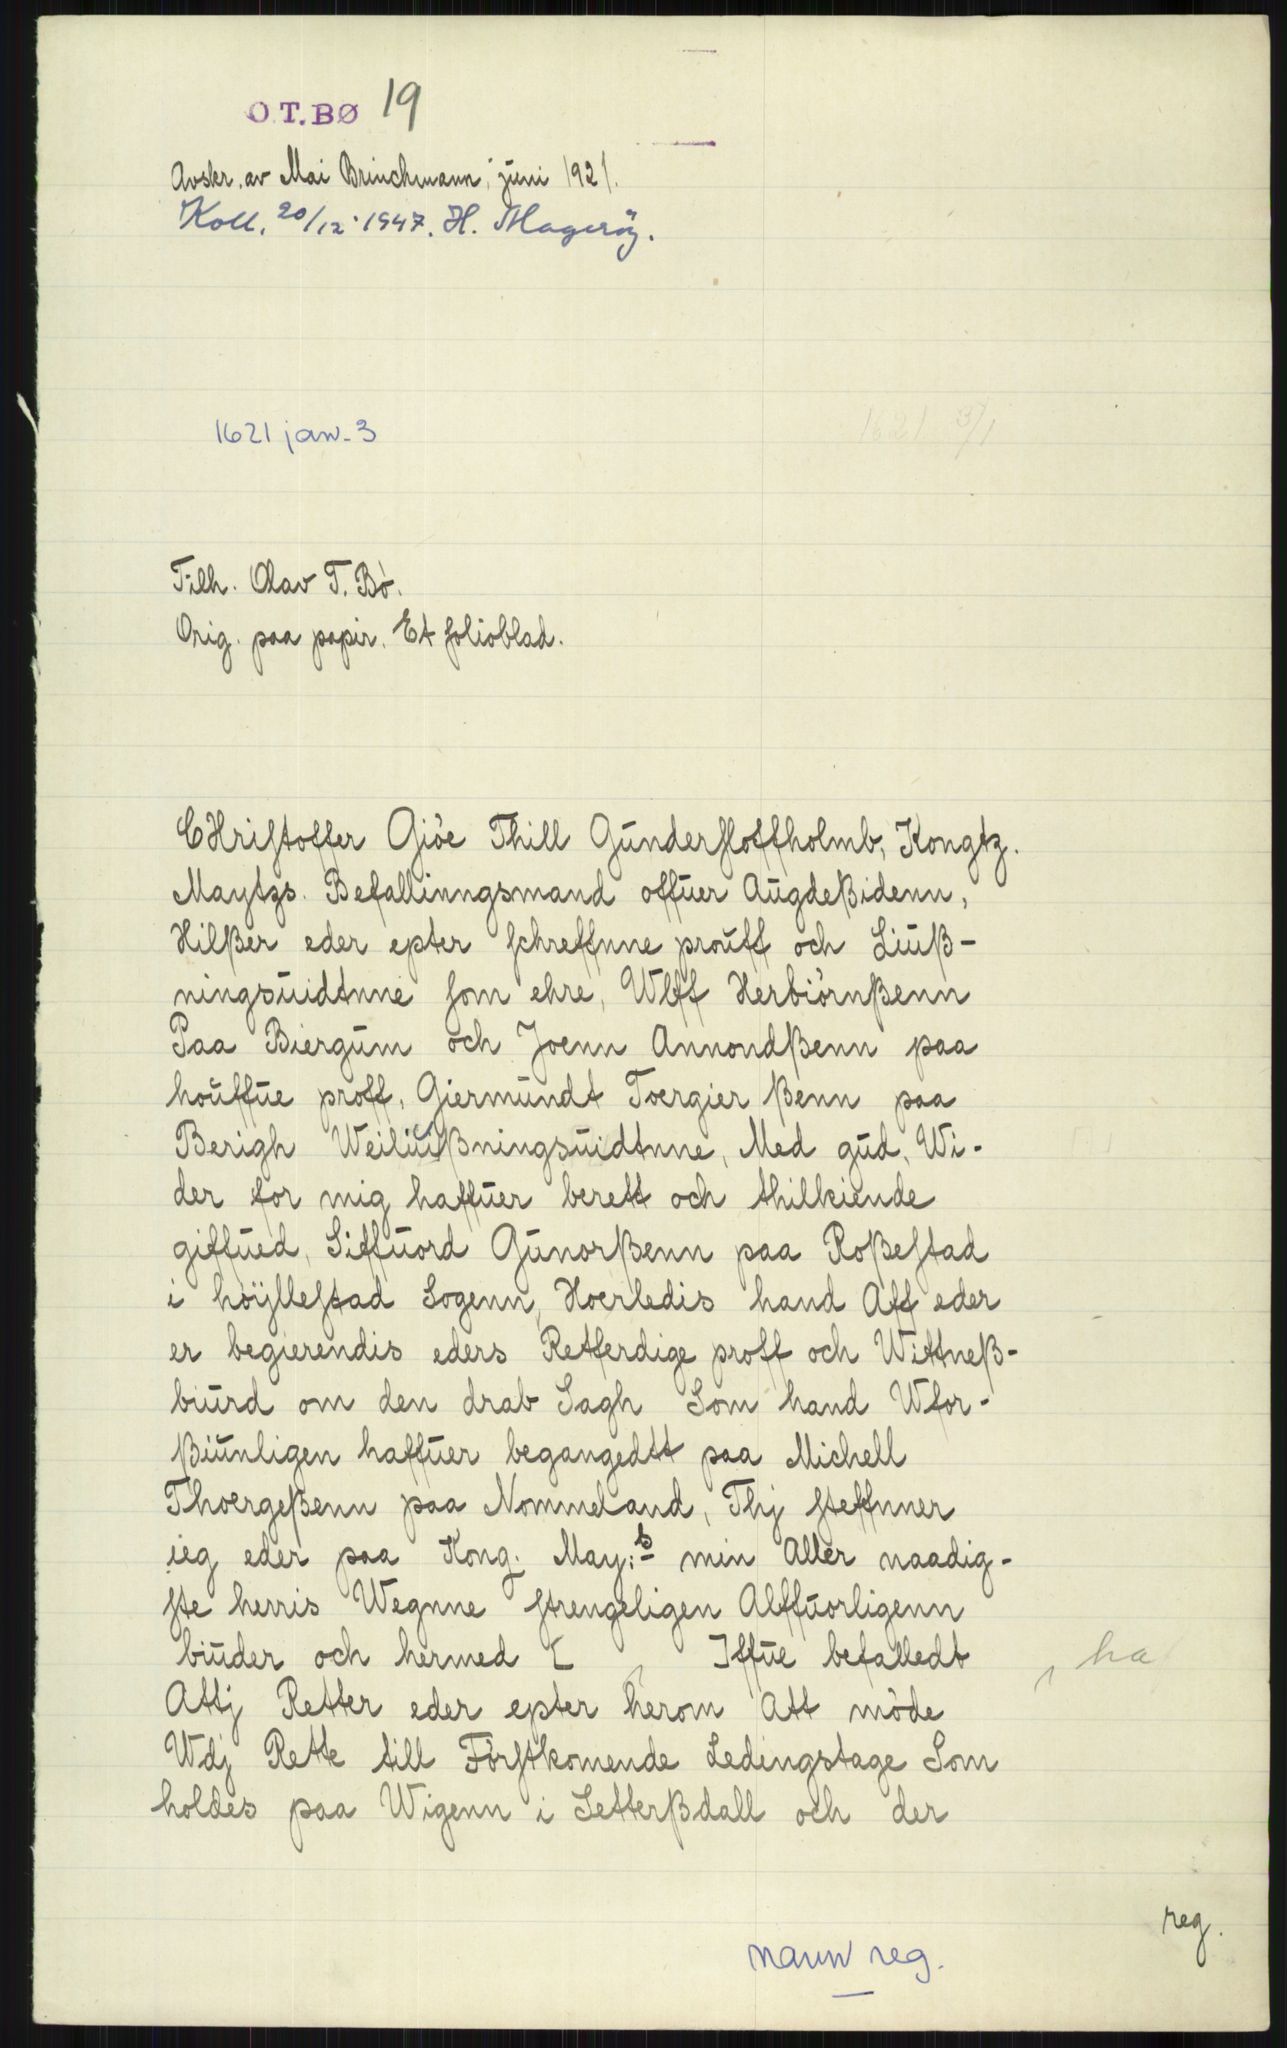 O.T.BØ 19
Avskr. av Mai Brinchmann, juni 1921.
Koll. 20/12 1947. H. Magerøy.
1621 jan. 3
1621 3/1
Tilh. Olav T. Bø.
Orig. paa papir. Et folioblad.
CHristoffer Giöe Thill Gunderslöffholmb, Kongtz.
Maytzs. Befallinngsmand offuer Augdeßidenn,
Hilßer eder epter schreffnne prouff och Liuß-
ningsuidtnne som ehre, Wlff Herbiörnßenn
Paa Biergum och Joenn Annondßenn paa
houffue proff, Giermundt Toergier ßenn paa
Berigh Weiliußningsuidtnne, Med gud, Wi-
der for mig haffuer berett och thilkiende
giffued, Siffuord Gunorßenn paa Roßestad
i höylestad Sogenn, Hoerledis hand Aff eder
er begierendis eders Retferdige proff och Wittneß-
biurd om den drab Sagh Som hand Wfor-
ßiunligen haffuer begangedtt paa Michell
Thoergeßenn paa Nommeland, Thj steffnner
ieg eder paa Kong. May:s min Aller naadig-
ste herris Wegnne strengeligen Alffuorligenn
biuder och hermed [ ]ffue befalledt
ha
Attj Retter eder epter herom Att möde
Wdj Rette till Förstkomende Ledingstage Som
holdes paa Wigenn i Setterßdall och der
reg.
navn reg.